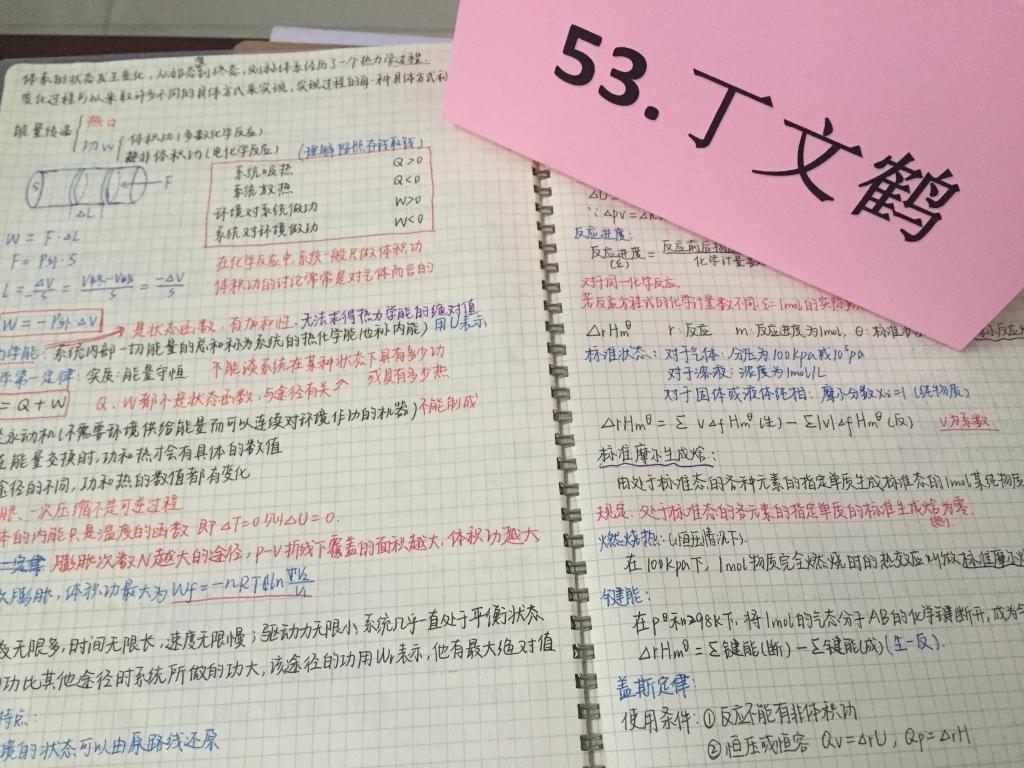 53.丁文鹤
体系的状态发生变化，从始态到终态，则称体系经历了一个热力学过程.
变化过程可以采取许多不同的具体方式来实现，实现过程的每一种具体方式称
能量传递
热Q
功W
体积功(多数化学反应)
非体积功(电化学反应) (理解按照存钱取钱)
系统吸热 Q>0
系统放热 Q<0
环境对系统做功 W>0
系统对环境做功 W<0
S F
ΔL
W = F·ΔL
F = P外·S
在化学反应中,系统一般只做体积功
体积功的讨论常常是对气体而言的
W=-P外·ΔV
是状态函数，有加和性.无法求得热力学能的绝对值
力学能：系统内部一切能量的总和称为系统的热化学能(也称内能) 用U表示
学第一定律:实质:能量守恒 不能谈系统在某种状态下具有多少功
或具有多少热
= Q+W Q、W都不是状态函数,与途径有关
永动机(不需要环境供给能量而可以连续对环境作功的机器)不能制成
在能量交换时,功和热才会有具体的数值
途径的不同，功和热的数值都有变化
一次压缩不是可逆过程
体的内能只是温度的函数 即ΔT=0则ΔU=0.
膨胀次数N越大的途径，p-V折线下覆盖的面积越大,体积功越大
次膨胀，体积功最大为
数无限多,时间无限长，速度无限慢；驱动力无限小;系统几乎一直处于平衡状态
功比其他途径时系统所做的功大，该途径的功用Wr表示,他有最大绝对值
特点:
境的状态可以由原路线还原
ΔU =
∵ΔpV=
反应进度:
反应进度(ξ) = 反应前后物 / 化学计量数
对于同一化学反应,
若反应方程式的化学计量数不同.ξ=1mol的实际
ΔrHmθ r:反应 m:反应进度为1mol, θ:标准状
标准状态: 对于气体:分压为100kpa或10⁵pa
对于溶液:浓度为1mol/L
对于固体或液体纯相:摩尔分数xi=1(纯物质)
ΔrHmθ = Σ νΔfHmθ(生) - Σ|ν|ΔfHmθ(反) ν为系数
标准摩尔生成焓:
由处于标准态的各种元素的指定单质生成标准态的1mol某纯物质
规定:处于标准态的各元素的指定单质的标准生成焓为零.
(热)
燃烧热:(恒压情况下).
在100Kpa下,1mol物质完全燃烧时的热效应叫做标准摩尔
键能:
在pθ和298K下,将1mol的气态分子AB的化学键断开,成为气
ΔrHmθ=Σ键能(断)-Σ键能(成)(生-反).
盖斯定律:
使用条件:①反应不能有非体积功
②恒压或恒容 Qv=ΔrU, Qp=ΔrH